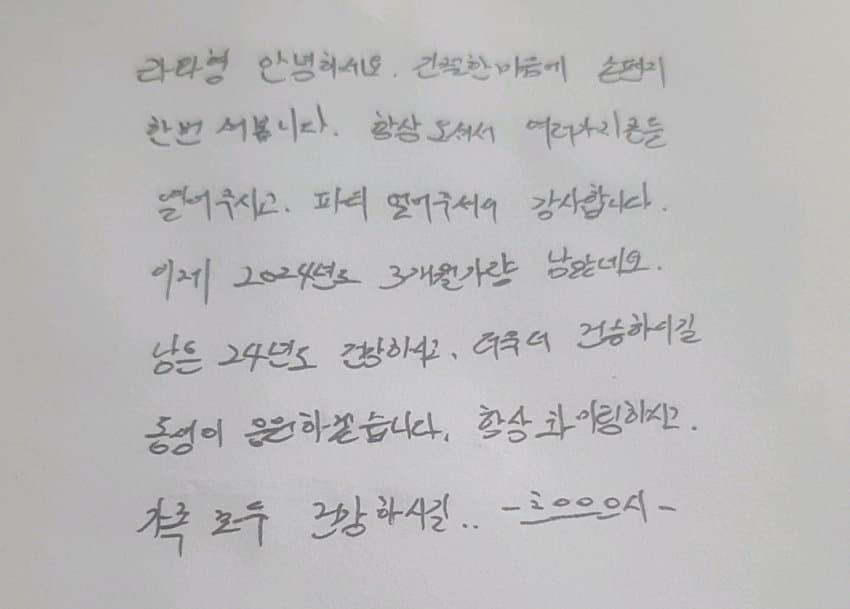 라타형 안녕하시오. 간절한 마음에 손편지
한번 써봅니다. 항상 오셔서 여러가지
열어주시고. 파티 열어주셔서 감사합니다.
이제 2024년도 3개월가량 남았네요.
남은 24년도 건강하시고, 더욱더 건승하시길
응원하겠습니다. 항상 화이팅하시고.
가족 모두 건강하시길.. -ㅎㅇㅇㅇㅅ-